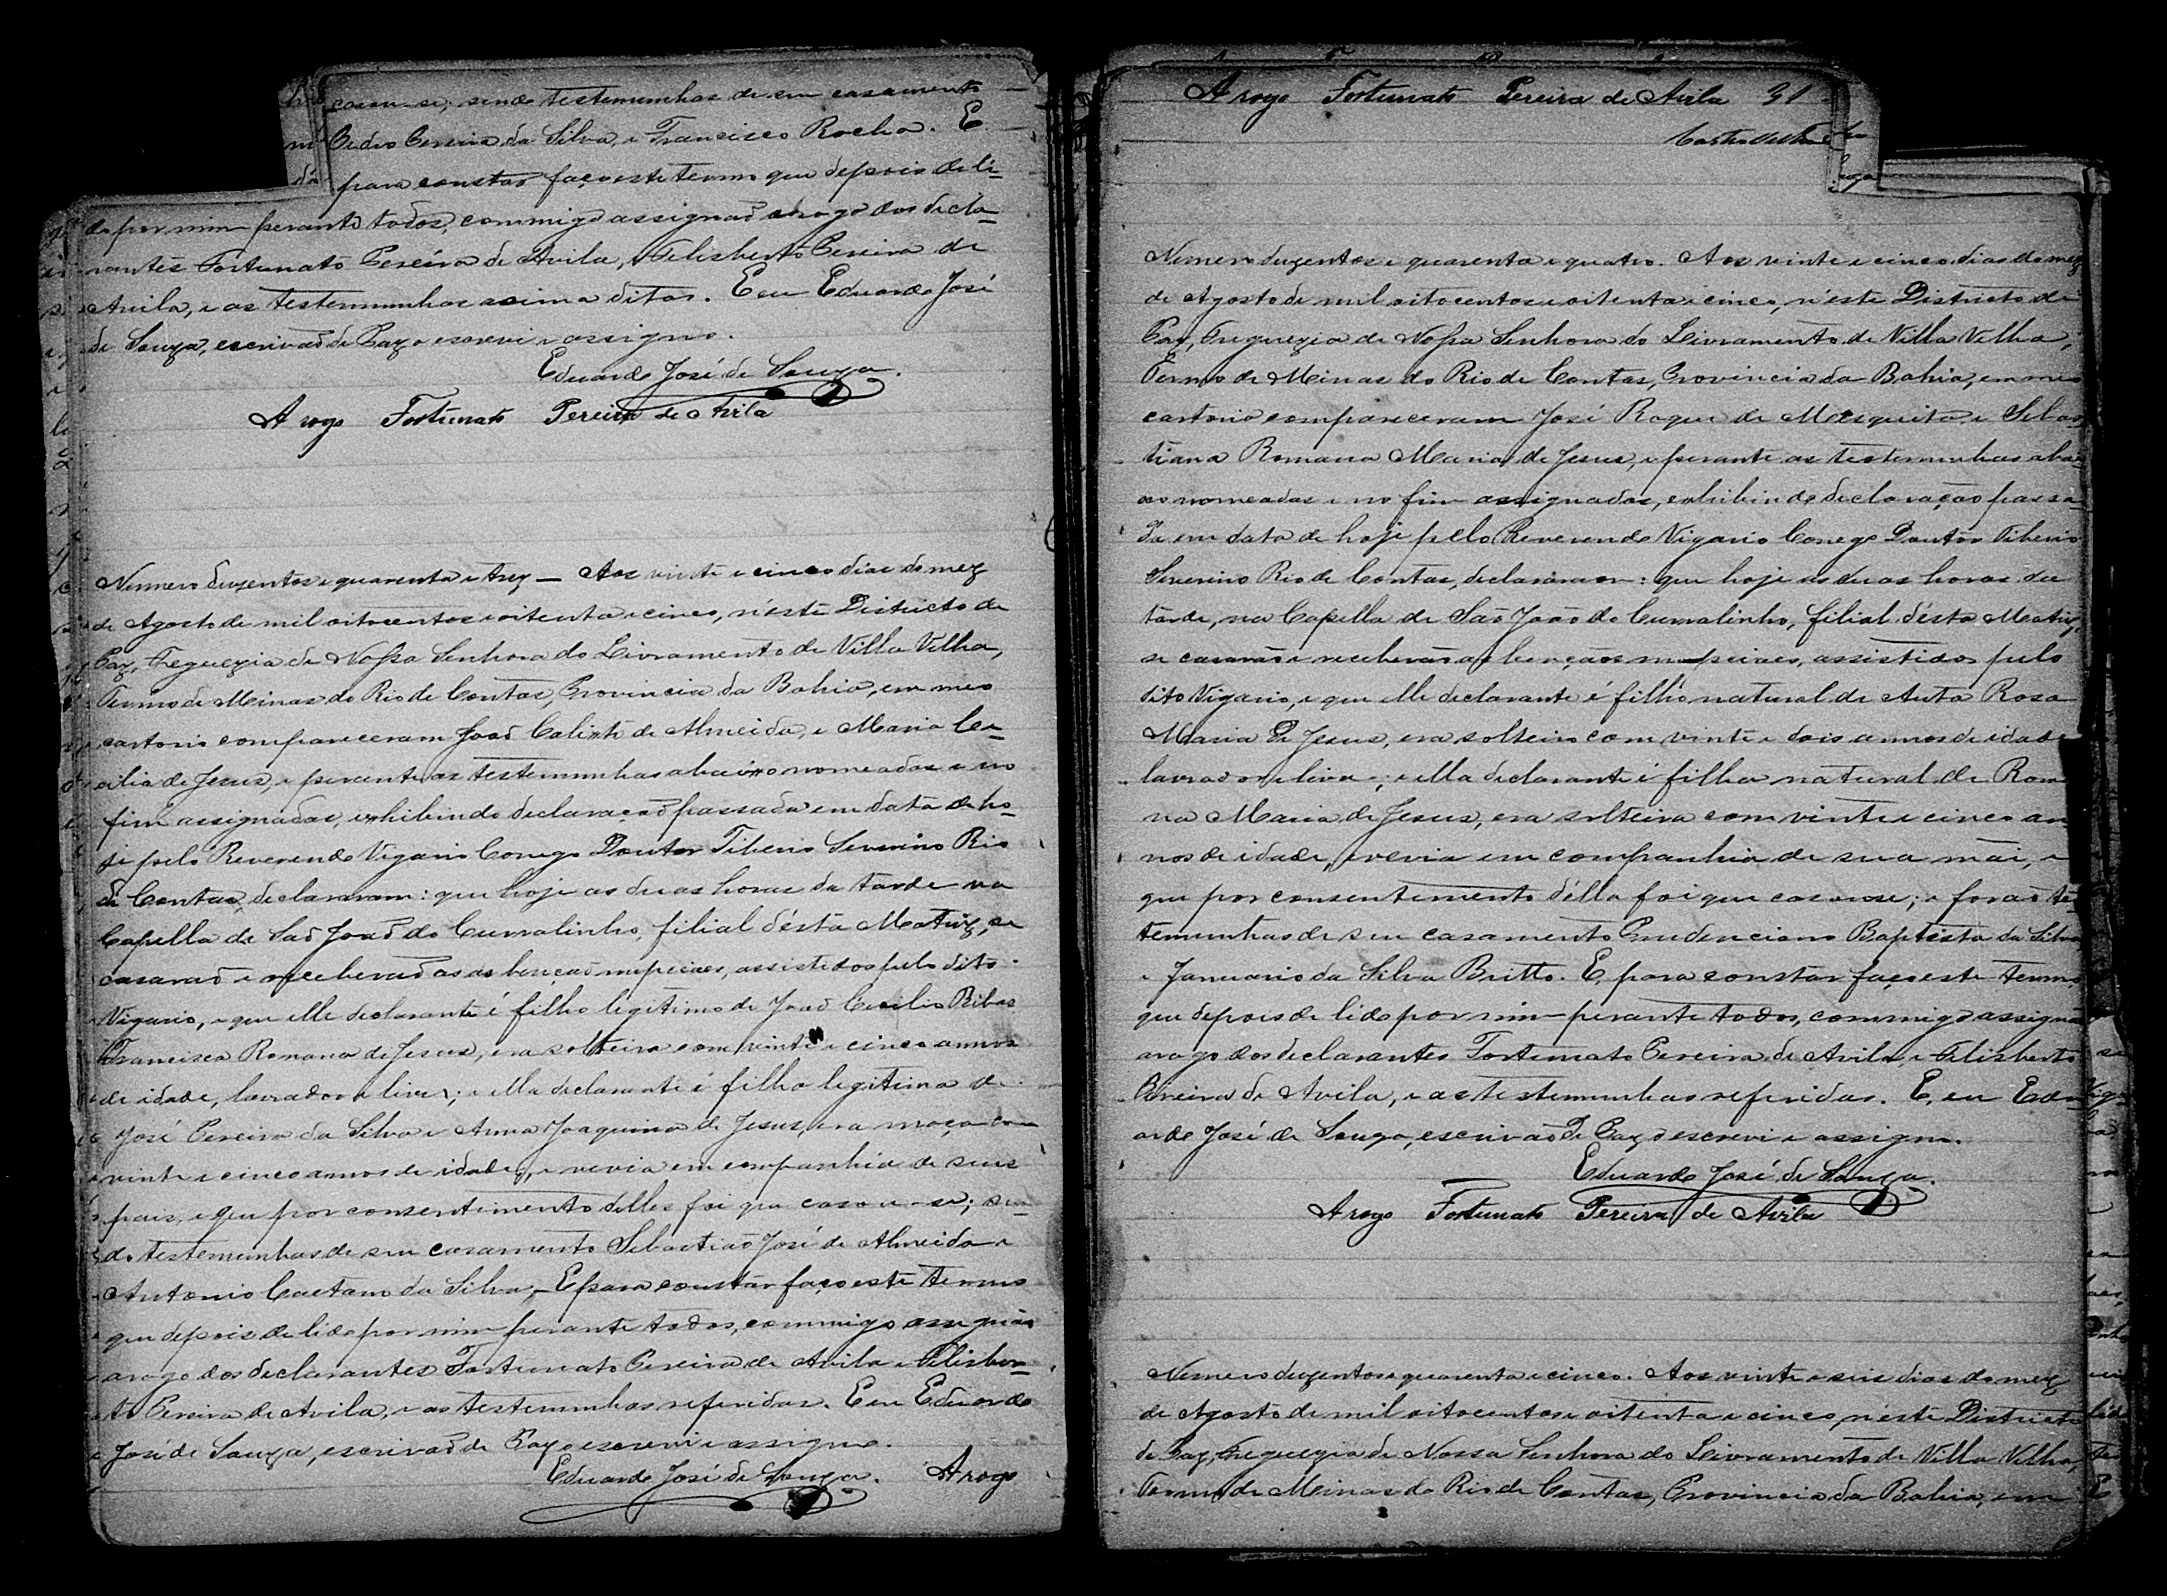 casou-se; sendo testemunhas de seu casamento
Pedro Pereira da Silva, e Francisco Rocha. E
para constar faço este termo que depois de li-
do por mim perante todos, commigo assignaõ arogo dos decla-
rantes Fortunato Pereira de Avila, e Felisberto Pereira de
Avila, e as testemunhas acima ditas. E eu Eduardo José
de Souza, escrivaõ de Paz o escrevi e assigno.
Eduardo José de Souza.
A rogo Fortunato Pereira de Avila
Numero duzentos e quarenta e trez — Aos vinte e cinco dias do mez
de Agosto de mil oitocentos e oitenta e cinco, n'este Districto de
Paz, Freguezia de Nossa Senhora do Livramento de Villa Velha,
Termo de Minas do Rio de Contas, Provincia da Bahia, em meo
cartorio compareceram Joaõ Calisto de Almeida, e Maria Ce-
cilia de Jesus, e perante as testemunhas abaixo nomeadas e no
fim assignadas, exhibindo declaraçaõ passada em data de ho-
je pelo Reverendo Vigario Conego Doutor Tiberio Severino Rio
de Contas, declararam: que hoje as duas horas da tarde na
Capella de Saõ Joaõ do Curralinho, filial d'ésta Matriz, se
casaraõ e receberaõ as bençaõs nupciaes, assistidos pelo dito
Vigario, e que elle declarante é filho legitimo de Joaõ Ribas
Francisca Romana de Jesus, era solteiro com vinte e cinco annos
de idade, lavrador e livre; e ella declarante é filha legitima de
José Pereira da Silva e Anna Joaquina de Jesus, era moça com
vinte e cinco annos de idade, e vevia em companhia de seus
pais, e que por consentimento delles foi que casou-se; sen-
do testemunhas de seu casamento Sebastiaõ José de Almeida e
Antonio Caetano da Silva, — E para constar faço este termo
que depois de lido por mim perante todos, commigo assignaõ
arogo dos declarantes Fortunato Pereira de Avila e Felisber-
to Pereira de Avila, e as testemunhas referidas. E eu Eduardo
José de Souza, escrivaõ de Paz o escrevi e assigno.
Eduardo José de Souza. A rogo
A rogo Fortunato Pereira de Avila 31
Numero duzentos e quarenta e quatro. Aos vinte e cinco dias do mez
de Agosto de mil oitocentos e oitenta e cinco, n'este Districto de
Paz, Freguezia de Nossa Senhora do Livramento de Villa Velha,
Termo de Minas do Rio de Contas, Provincia da Bahia, em meo
cartorio compareceram José Roque de Mesquita e Sebas-
tiana Romana Maria de Jesus, e perante as testemunhas abai-
xo nomeadas e no fim assignadas, exhibindo declaraçaõ passa-
da em data de hoje pelo Reverendo Vigario Conego Doutor Tiberio
Severino Rio de Contas, declararam: que hoje as duas horas da
tarde, na Capella de Saõ Joaõ do Curralinho, filial d'ésta Matriz,
se casaraõ e receberaõ as bençaõs nupciaes, assistidos pelo
dito Vigario, e que elle declarante é filho natural de Auta Rosa
Maria de Jesus, era solteiro com vinte e dois annos de idade
lavrador e livre; e ella declarante é filha natural de Roma-
na Maria de Jesus, era solteira com vinte e cinco an-
nos de idade, e vevia em companhia de sua mãi, e
que por consentimento d'ella foi que casou-se; e foraõ tes-
temunhas de seu casamento Prudenciano Baptista da Silva
e Januario da Silva Britto. E, para constar faço este termo
que depois de lido por mim perante todos, commigo assignaõ
arogo dos declarantes Fortunato Pereira de Avila, e Felisberto
Pereira de Avila, e as testemunhas referidas. E, eu Edu-
ardo José de Souza, escrivaõ de Paz o escrevi e assigno.
Eduardo José de Souza.
A rogo Fortunato Pereira de Avila
Numero duzentos e quarenta e cinco. Aos vinte e seis dias do mez
de Agosto de mil oitocentos e oitenta e cinco, n'este Districto
de Paz, Freguezia de Nossa Senhora do Livramento de Villa Velha,
Termo de Minas do Rio de Contas, Provincia da Bahia, em